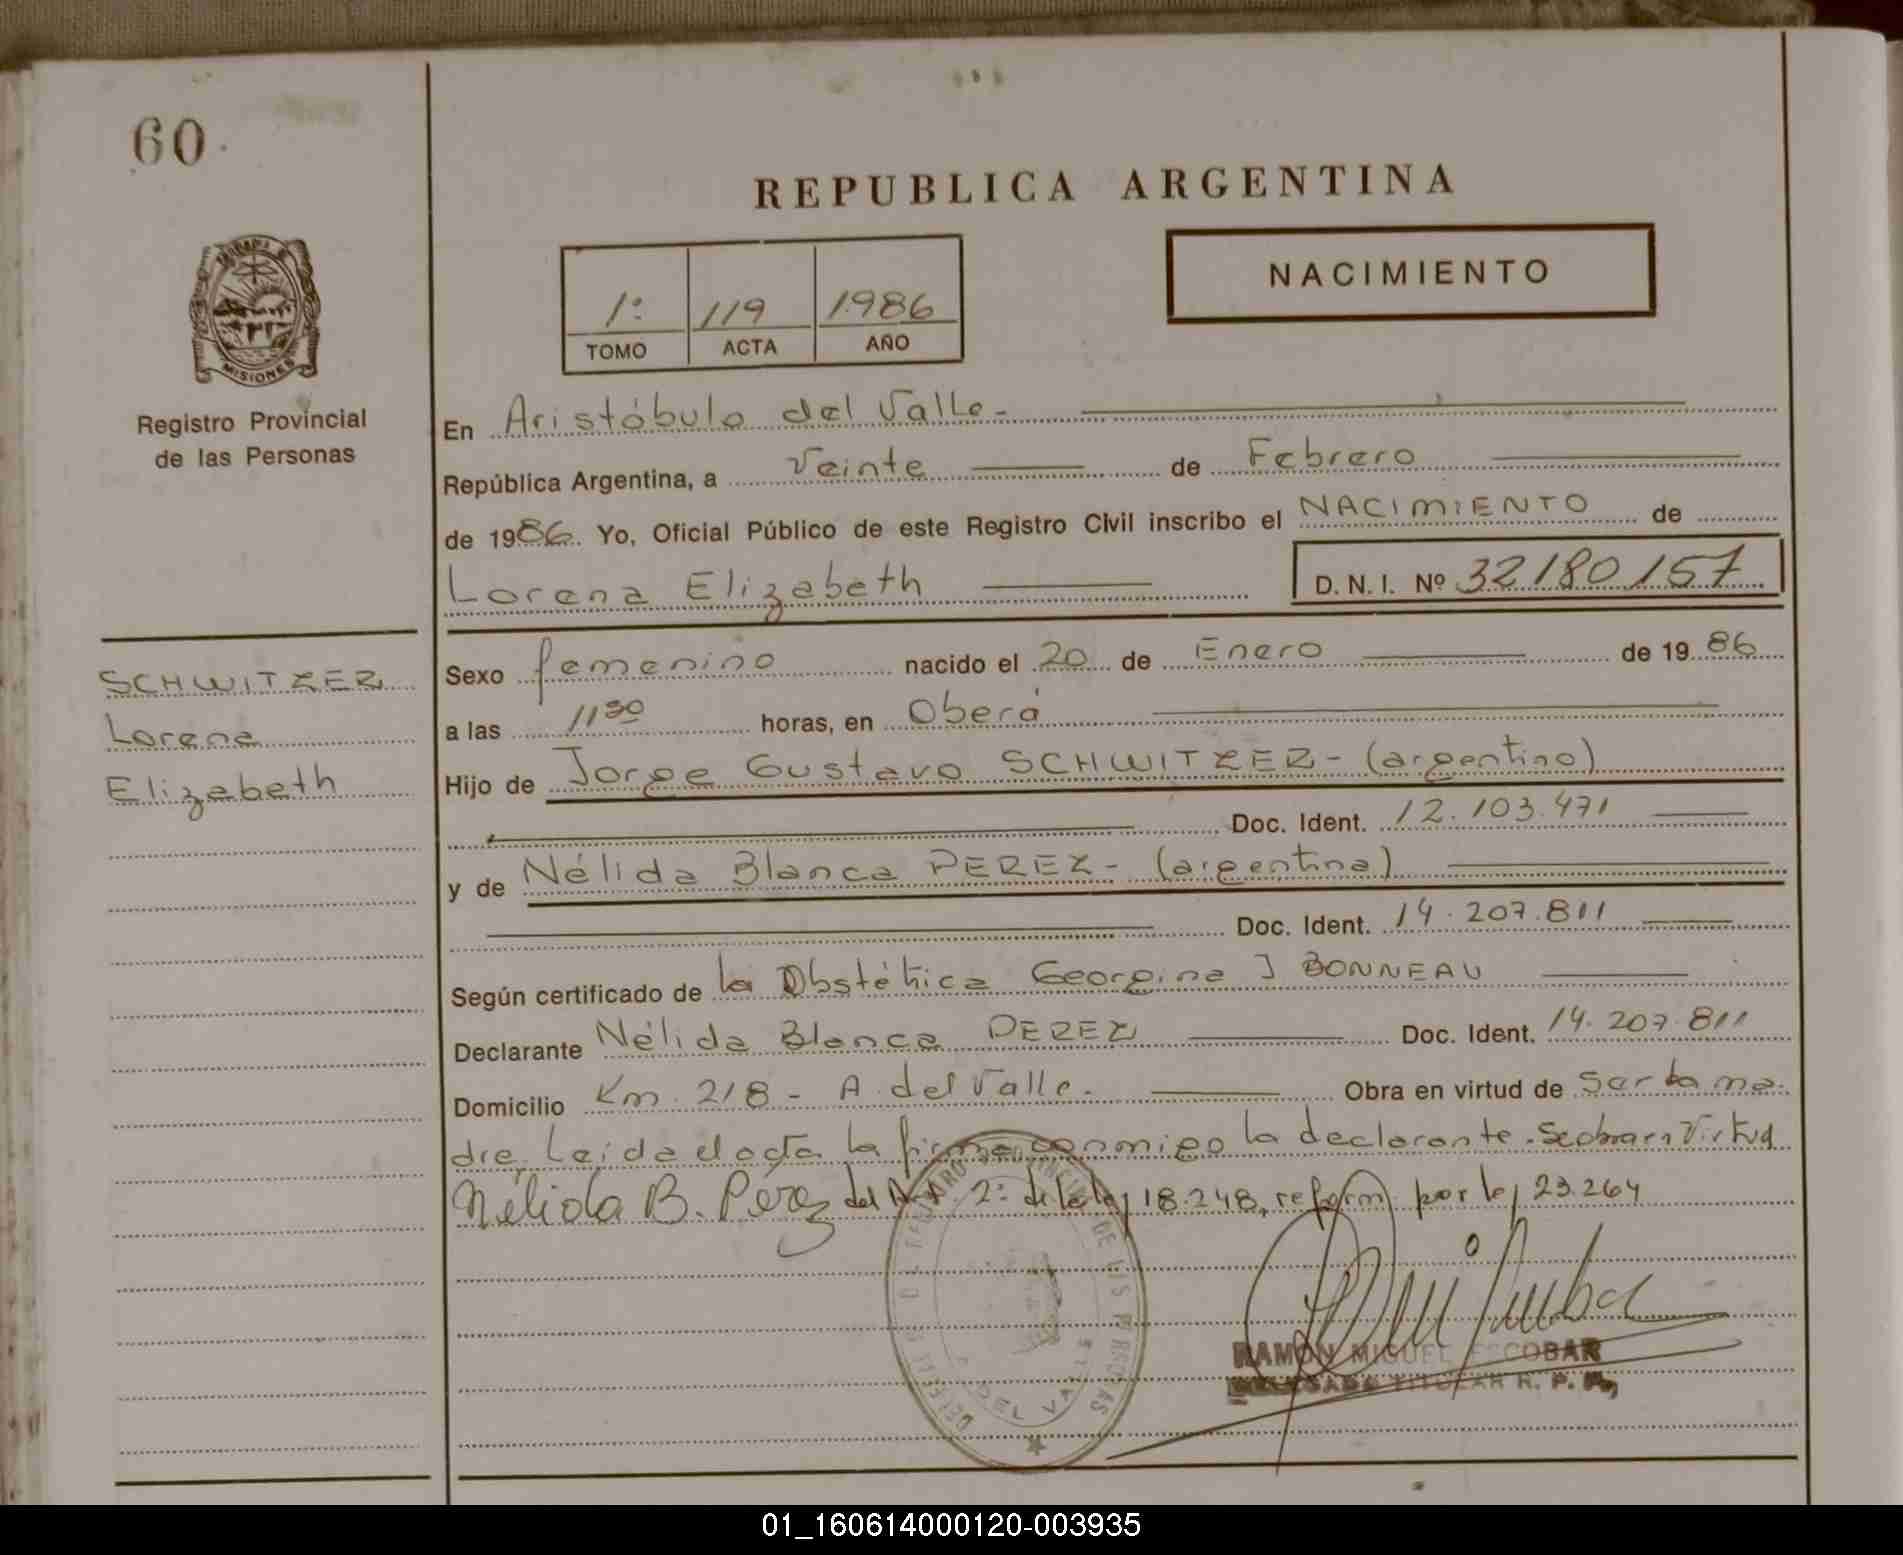 60
REPUBLICA ARGENTINA
MISIONES
Registro Provincial
de las Personas
1º 119 1986
TOMO ACTA AÑO
NACIMIENTO
En Aristóbulo del Valle-
República Argentina, a Veinte de Febrero
de 1986. Yo, Oficial Público de este Registro Civil inscribo el NACIMIENTO de
Lorena Elizabeth D. N. I. Nº 32180157
SCHWITZER
Lorena
Elizabeth
Sexo femenino nacido el 20 de Enero de 1986
a las 11 30 horas, en Oberá
Hijo de Jorge Gustavo SCHWITZER- (argentino)
Doc. Ident. 12.103.471
y de Nélida Blanca PEREZ- (argentina)
Doc. Ident. 14.207.811
Según certificado de la Obstétrica Georgina J BONNEAU
Declarante Nélida Blanca PEREZ Doc. Ident. 14.207.811
Domicilio Km. 218- A. del Valle. Obra en virtud de ser la ma-
dre. Leida el acta la firma conmigo la declarante. Se obra en Virtud
Nélida B. Pérez del Art. 2º de la ley 18.248, reform. por ley 23.264
DE LAS PERSONAS
DEL VALLE
RAMON MIGUEL ESCOBAR
DELEGADO TITULAR R. P. P.
01_160614000120-003935